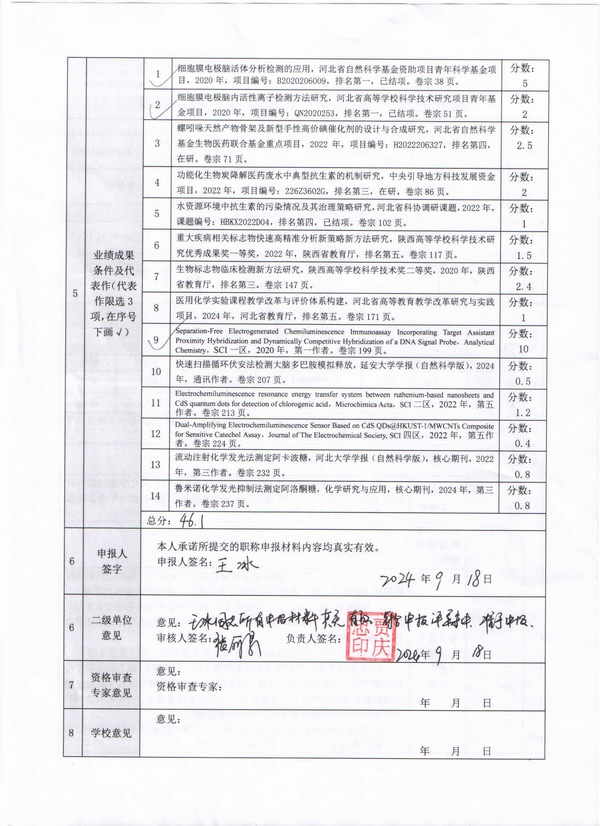 5
业绩成果
条件及代
表作(代表
作限选 3
项,在序号
下画√)
1
细胞膜电极脑活体分析检测的应用,河北省自然科学基金资助项目青年科学基金项
目,2020 年,项目编号:B2020206009,排名第一,已结项。卷宗 38 页。
分数:
5
2
细胞膜电极脑内活性离子检测方法研究,河北省高等学校科学技术研究项目青年基
金项目,2020 年,项目编号:QN2020253,排名第一,已结项。卷宗 51 页。
分数:
2
3
螺吲哚天然产物骨架及新型手性高价碘催化剂的设计与合成研究,河北省自然科学
基金生物医药联合基金重点项目,2022 年,项目编号:H2022206327,排名第四,
在研。卷宗 71 页。
分数:
2.5
4
功能化生物炭降解医药废水中典型抗生素的机制研究,中央引导地方科技发展资金
项目,2022 年,项目编号:226Z3602G,排名第三,在研。卷宗 86 页。
分数:
2
5
水资源环境中抗生素的污染情况及其治理策略研究,河北省科协调研课题,2022 年,
课题编号:HBKX2022D04,排名第四,已结项。卷宗 102 页。
分数:
1
6
重大疾病相关标志物快速高精准分析新策略新方法研究,陕西高等学校科学技术研
究优秀成果奖一等奖,2022 年,陕西省教育厅,排名第五。卷宗 117 页。
分数:
1.5
7
生物标志物临床检测新方法研究,陕西高等学校科学技术奖二等奖,2020 年,陕西
省教育厅,排名第三。卷宗 147 页。
分数:
2.4
8
医用化学实验课程教学改革与评价体系构建,河北省高等教育教学改革研究与实践
项目,2024 年,河北省教育厅,排名第五。卷宗 171 页。
分数:
1
9
Separation-Free Electrogenerated Chemiluminescence Immunoassay Incorporating Target Assistant
Proximity Hybridization and Dynamically Competitive Hybridization of a DNA Signal Probe,Analytical
Chemistry,SCI 一区,2020 年,第一作者。卷宗 199 页。
分数:
10
10
快速扫描循环伏安法检测大脑多巴胺模拟释放,延安大学学报(自然科学版),2024
年,通讯作者。卷宗 207 页。
分数:
0.5
11
Electrochemiluminescence resonance energy transfer system between ruthenium-based nanosheets and
CdS quantum dots for detection of chlorogenic acid,Microchimica Acta,SCI 二区,2022 年,第五
作者。卷宗 213 页。
分数:
1.2
12
Dual-Amplifying Electrochemiluminescence Sensor Based on CdS QDs@HKUST-1/MWCNTs Composite
for Sensitive Catechol Assay,Journal of The Electrochemical Society, SCI 四区,2022 年,第五作
者。卷宗 224 页。
分数:
0.4
13
流动注射化学发光法测定阿卡波糖,河北大学学报(自然科学版),核心期刊,2022
年,第三作者。卷宗 232 页。
分数:
0.8
14
鲁米诺化学发光抑制法测定阿洛酮糖,化学研究与应用,核心期刊,2024 年,第三
作者。卷宗 237 页。
分数:
0.8
总分:46.1
6
申报人
签字
本人承诺所提交的职称申报材料内容均真实有效。
申报人签名:王冰
2024 年 9 月 18 日
6
二级单位
意见
意见:王冰同志所有申报材料真实有效,符合申报评审条件,准予申报。
审核人签名:
负责人签名:
贾庆忠印
2024 年 9 月 18 日
7
资格审查
专家意见
意见:
资格审查专家:
年 月 日
8
学校意见
意见:
年 月 日